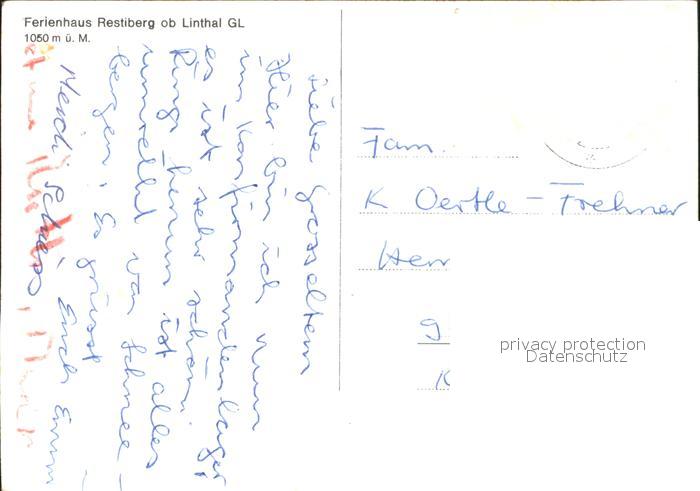 Ferienhaus Restiberg ob Linthal GL
1050 m ü. M.
Liebe Grosseltern
Hier bin ich nun
im Konfirmandenlager
es ist sehr schön.
Rings herum ist alles
umstellt von Schnee-
bergen. Es grüsst
Euch Emm
Merci
Fam.
K Oertle - Frehner
Herr
9
K
privacy protection
Datenschutz